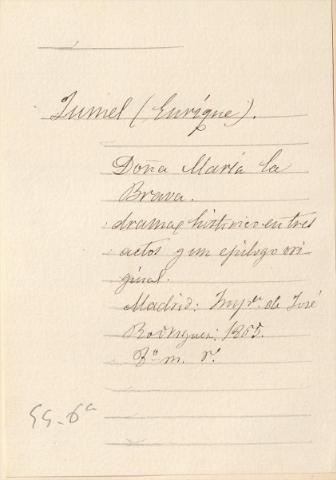 Zumel (Enrique).
Doña María la
Brava.
drama histórico en tres
actos y un epílogo ori-
ginal.
Madrid: Impr. de José
Rodriguez: 1865.
8º m. r.